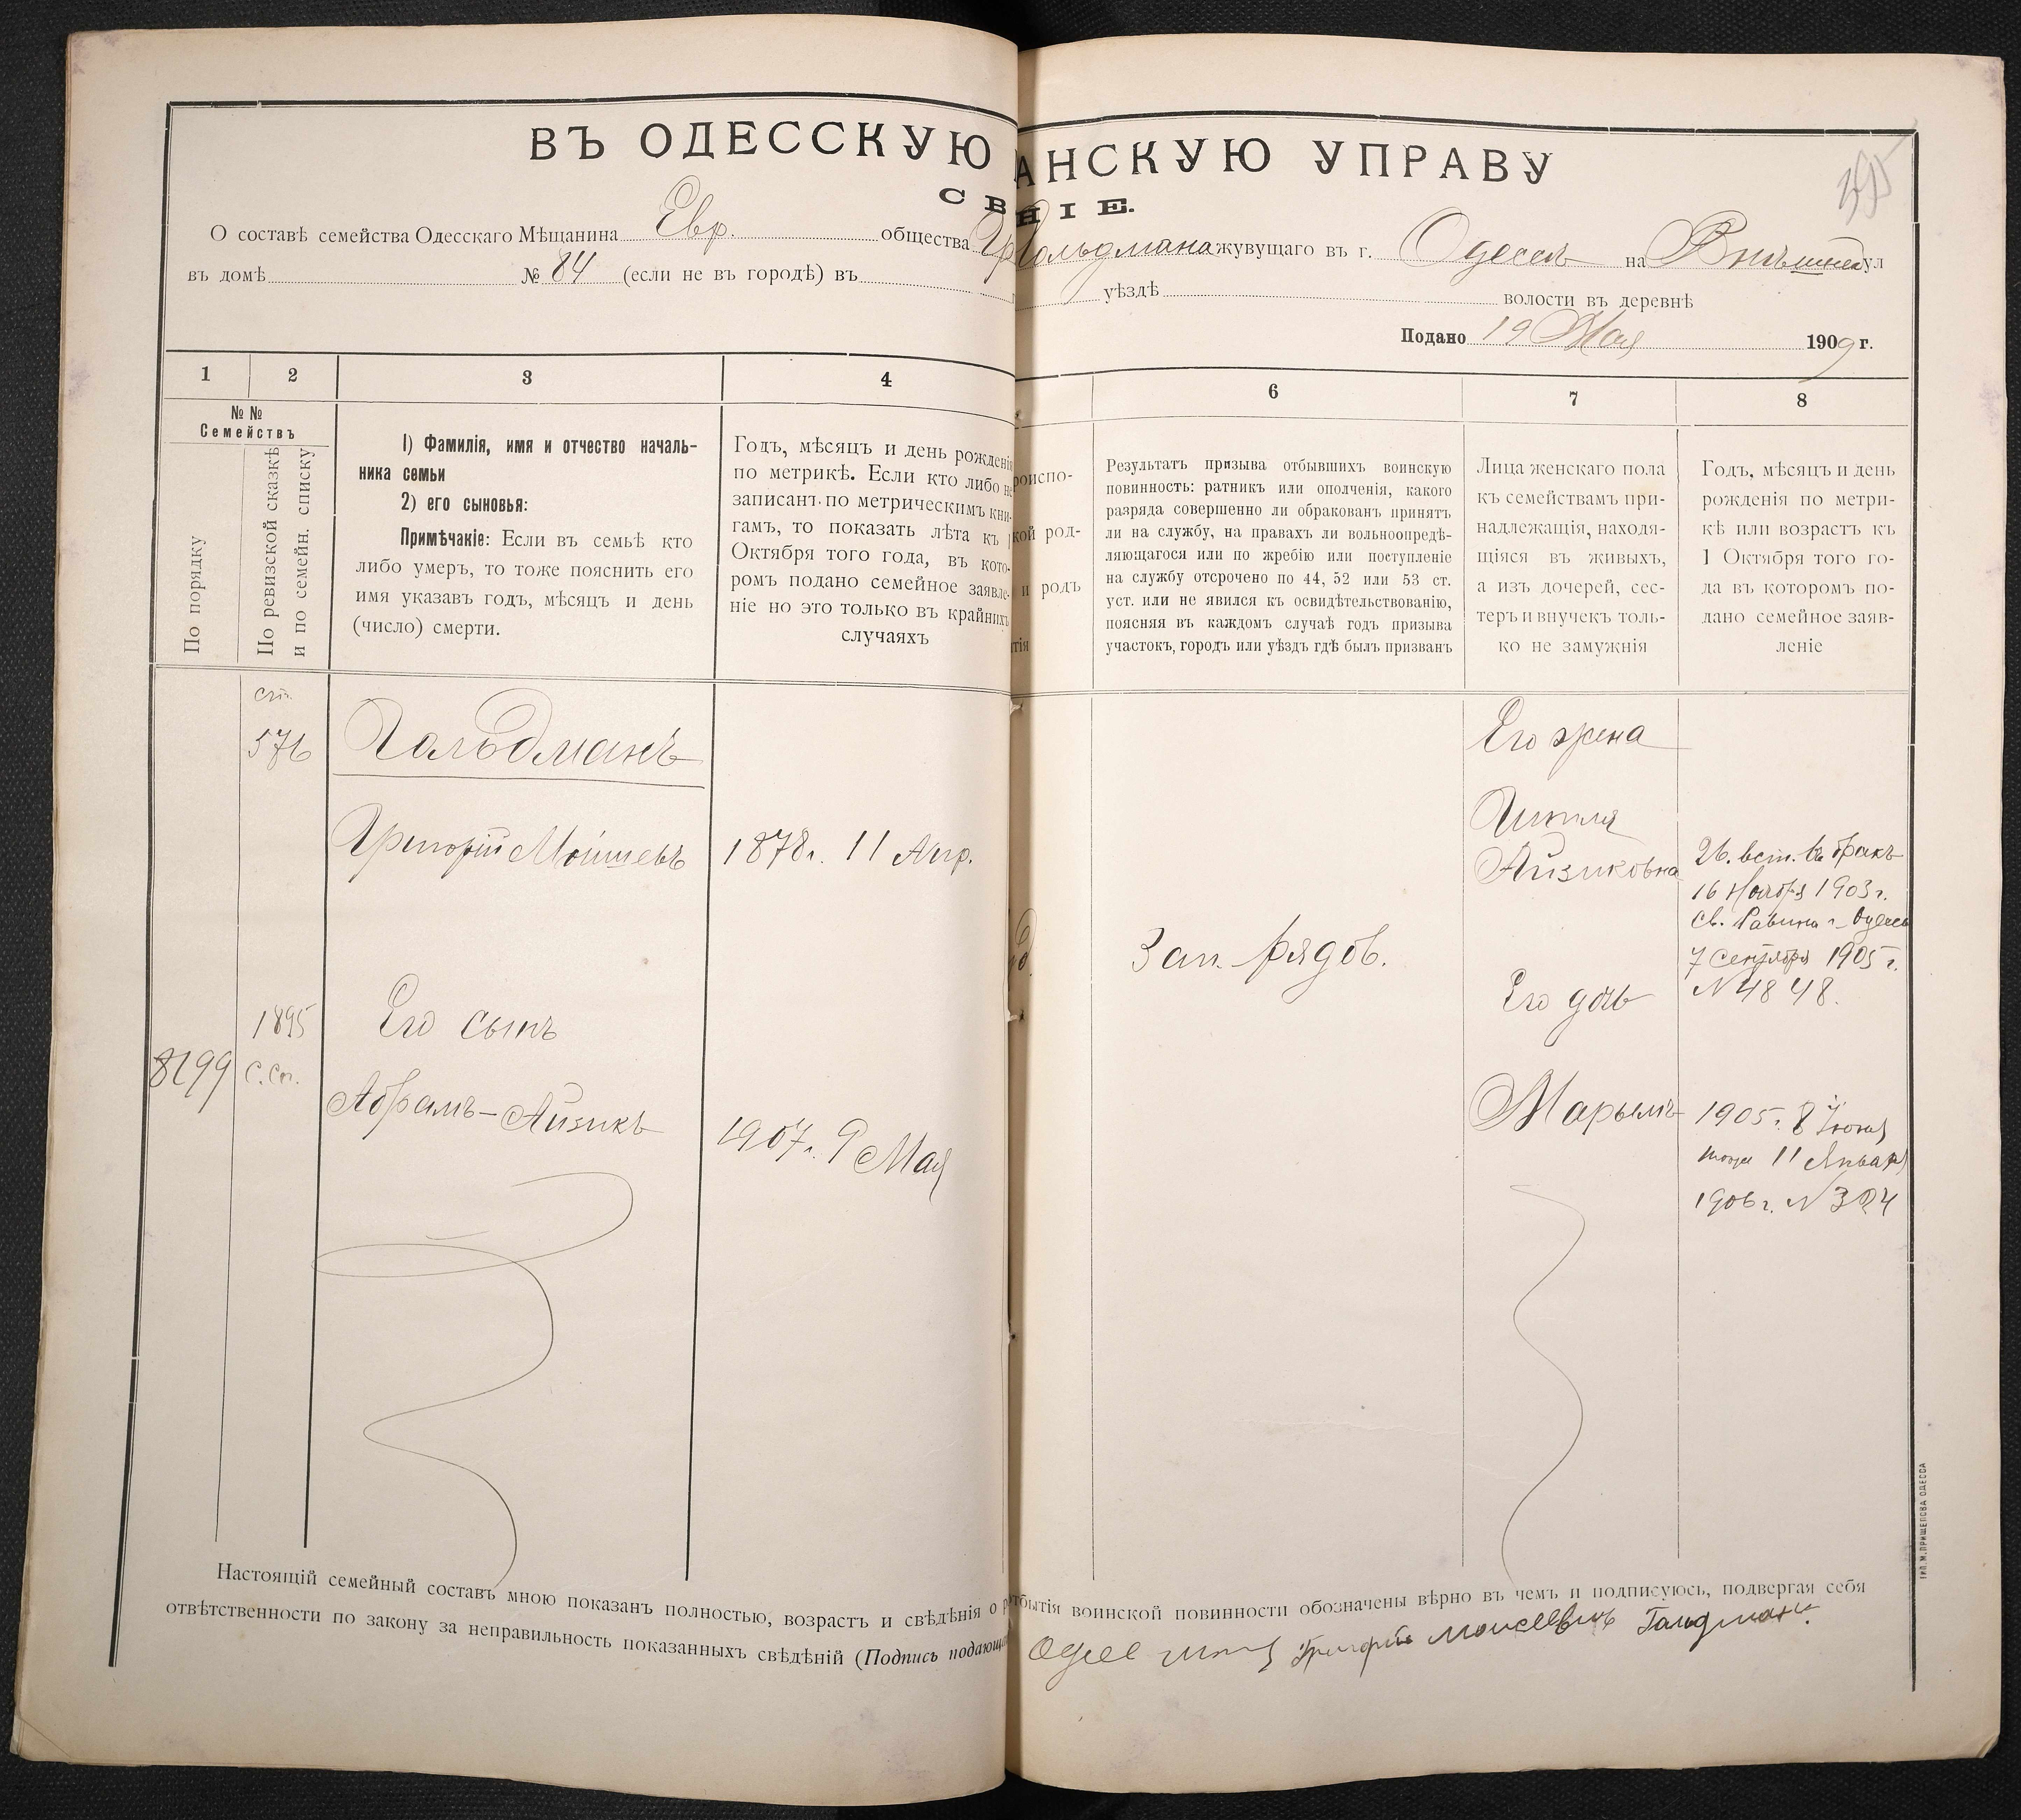 ВЪ ОДЕССКУЮ АНСКУЮ УПРАВУ
СВ НІЕ.
О составѣ семейства Одесскаго Мѣщанина Евр. общества Гр Гольдмана жувущаго въ г. Одессѣ на Внѣшней ул
въ домѣ № 84 (если не въ городѣ) въ уѣздѣ волости въ деревнѣ
Подано 19 Мая 1909 г.
1 2 3 4 6 7 8
№ №
Семействъ
По порядку
По ревизской сказкѣ
и по семейн. списку
1) Фамилія, имя и отчество началь-
ника семьи
2) его сыновья:
Примѣчакіе: Если въ семьѣ кто
либо умеръ, то тоже пояснить его
имя указавъ годъ, мѣсяцъ и день
(число) смерти.
Годъ, мѣсяцъ и день рожденія
по метрикѣ. Если кто либо не
записанъ по метрическимъ кни-
гамъ, то показать лѣта къ 1
Октября того года, въ кото-
ромъ подано семейное заявле-
ніе но это только въ крайнихъ
случаяхъ
роиспо-
кой род-
и родъ
тія
Результатъ призыва отбывшихъ воинскую
повинность: ратникъ или ополченія, какого
разряда совершенно ли обракованъ принятъ
ли на службу, на правахъ ли вольноопредѣ-
ляющагося или по жребію или поступленіе
на службу отсрочено по 44, 52 или 53 ст.
уст. или не явился къ освидѣтельствованію,
поясняя въ каждомъ случаѣ годъ призыва
участокъ, городъ или уѣздъ гдѣ былъ призванъ
Лица женскаго пола
къ семействамъ при-
надлежащія, находя-
щіяся въ живыхъ,
а изъ дочерей, сес-
теръ и внучекъ толь-
ко не замужнія
Годъ, мѣсяцъ и день
рожденія по метри-
кѣ или возрастъ къ
1 Октября того го-
да въ которомъ по-
дано семейное заяв-
леніе
ст.
576
Гольдманъ
Григорій Мойшевъ
1878 г. 11 Апр.
1895
8199
Его сынъ
Абрамъ-Айзикъ
1907 г. 9 Мая
Зап. рядов.
Его жена
Айзиковна
26. вст. въ бракъ
16 Ноября 1903 г.
св. Равина г. Одессы
7 Сентября 1905 г.
N 4848.
Его дочь
Марьямъ
1905 г. 8 Іюня
11 Января
1906 г. N 324
Настоящій семейный составъ мною показанъ полностью, возрастъ и свѣдѣнія о отбытія воинской повинности обозначены вѣрно въ чемъ и подписуюсь, подвергая себя
отвѣтственности по закону за неправильность показанныхъ свѣдѣній (Подпись подающ
Григорій Моисеевичъ Гольдманъ.
ТИП. М. ПРИЩЕПОВА ОДЕССА